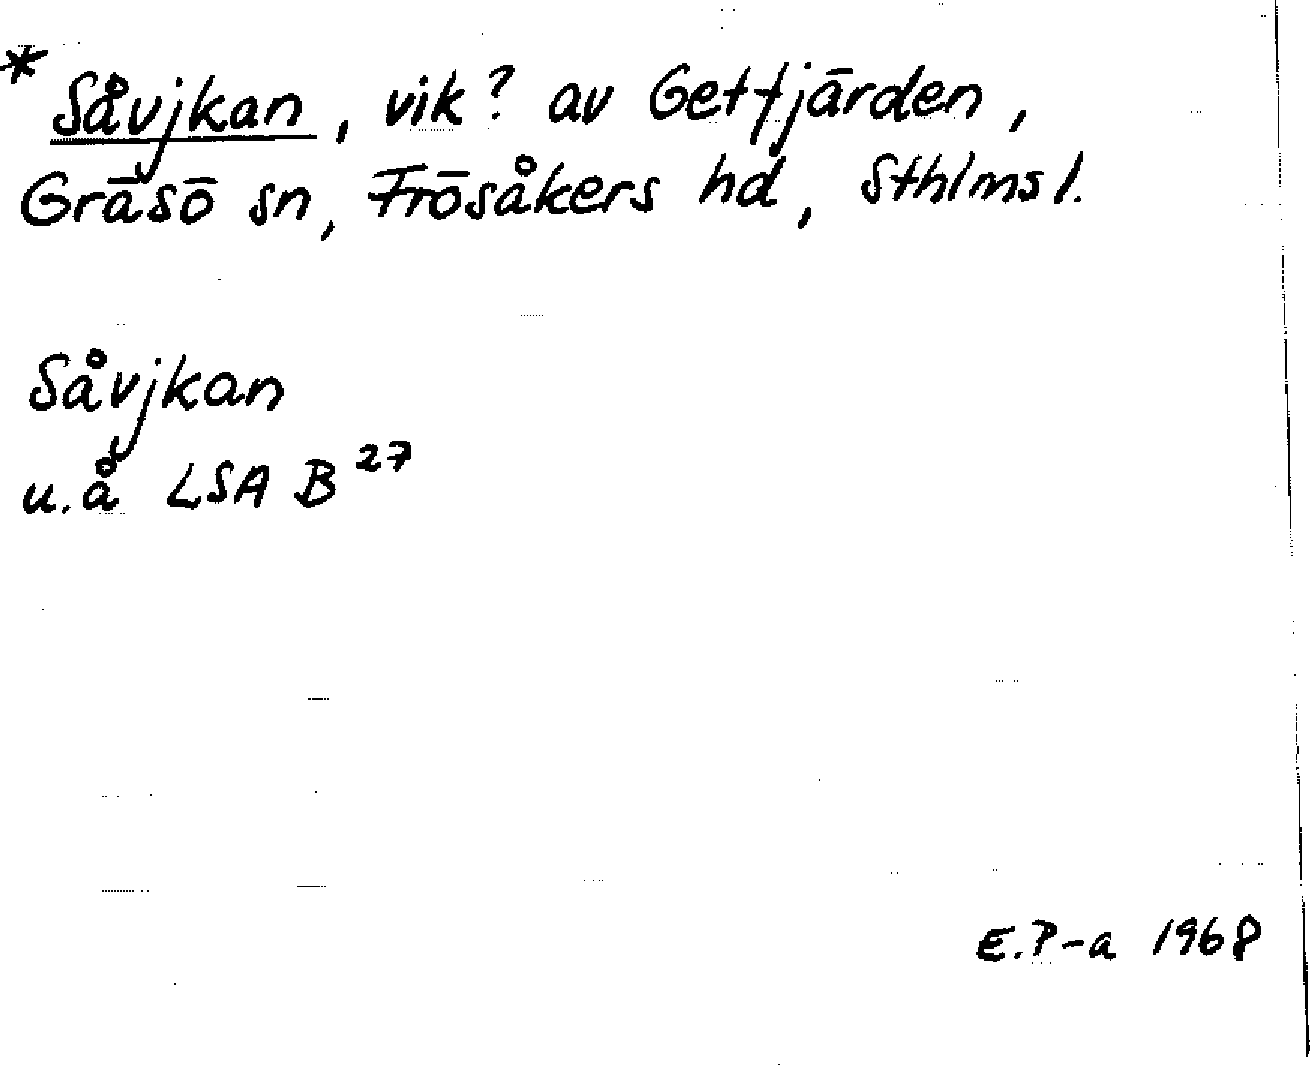 * Såvjkan, vik? av Getfjärden,
Gräsö sn, Frösåkers hd, Sthlms l.
Såvjkan
u.å LSA B 27
E.P-a 1968